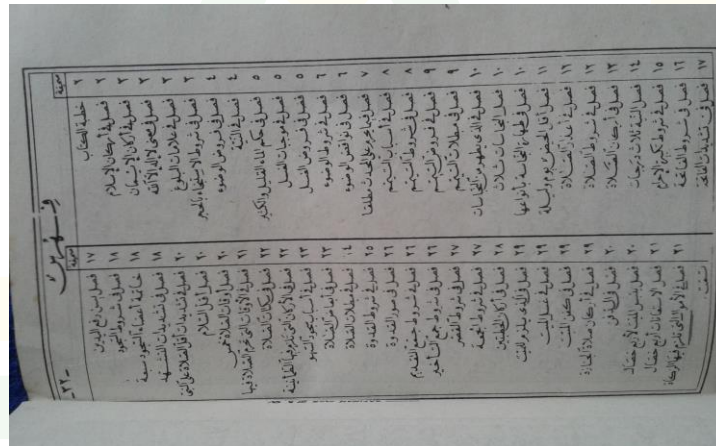 -٣٢-
فهرست
صحيفة
٢ خطبة الكتاب
٢ فصل في أركان الإسلام
٣ فصل في أركان الإيمان
٣ فصل في معنى لا إله إلا الله
٣ فصل في علامات البلوغ
٣ فصل في شروط الاستنجاء بالحجر
٤ فصل في فروض الوضوء
٤ فصل في النية
٥ فصل في حكم الماء القليل والكثير
٥ فصل في موجبات الغسل
٥ فصل في فروض الغسل
٦ فصل في شروط الوضوء
٦ فصل في نواقض الوضوء
٧ فصل فيما يحرم على المحدث مطلقا
٨ فصل في أسباب التيمم
٨ فصل في شروط التيمم
٩ فصل في فروض التيمم
٩ فصل في مبطلات التيمم
١٠ فصل في الذي يطهر من النجاسات
١٠ فصل النجاسات ثلاث
١٠ فصل في طهارة النجاسة بأنواعها
١١ فصل أقل الحيض يوم وليلة
١٢ فصل في أعذار الصلاة
١٢ فصل في شروط الصلاة
١٣ فصل في أركان الصلاة
١٤ فصل النية ثلاث درجات
١٥ فصل في شروط تكبيرة الإحرام
١٦ فصل في شروط الفاتحة
١٧ فصل في تشديدات الفاتحة
صحيفة
١٧ فصل يسن رفع اليدين
١٨ فصل في شروط السجود
١٨ خاتمة أعضاء السجود سبعة
١٨ فصل في تشديدات التشهد
٢٠ فصل في تشديدات أقل الصلاة على النبي
٢٠ فصل أقل السلام
٢٠ فصل أوقات الصلاة خمس
٢١ فصل في الأوقات التي تحرم الصلاة فيها
٢٢ فصل سكتات الصلاة
٢٢ فصل في الأركان التي تلزم فيها الطمأنينة
٢٣ فصل في أسباب سجود السهو
٢٣ فصل في أبعاض الصلاة
٢٤ فصل في مبطلات الصلاة
٢٥ فصل في شروط القدوة
٢٦ فصل في صور القدوة
٢٦ فصل في شروط جمع التقديم
٢٦ فصل في شروط جمع التأخير
٢٧ فصل في شروط القصر
٢٧ فصل في شروط الجمعة
٢٨ فصل في أركان الخطبتين
٢٩ فصل في الذي يلزم للميت
٢٩ فصل في غسل الميت
٢٩ فصل في كفن الميت
٢٩ فصل في أركان صلاة الجنازة
٣٠ فصل في الدفن
٣٠ فصل ينبش الميت لأربع خصال
٣١ فصل الاستعانات أربع خصال
٣١ فصل في الأموال التي تلزم فيها الزكاة
تمت